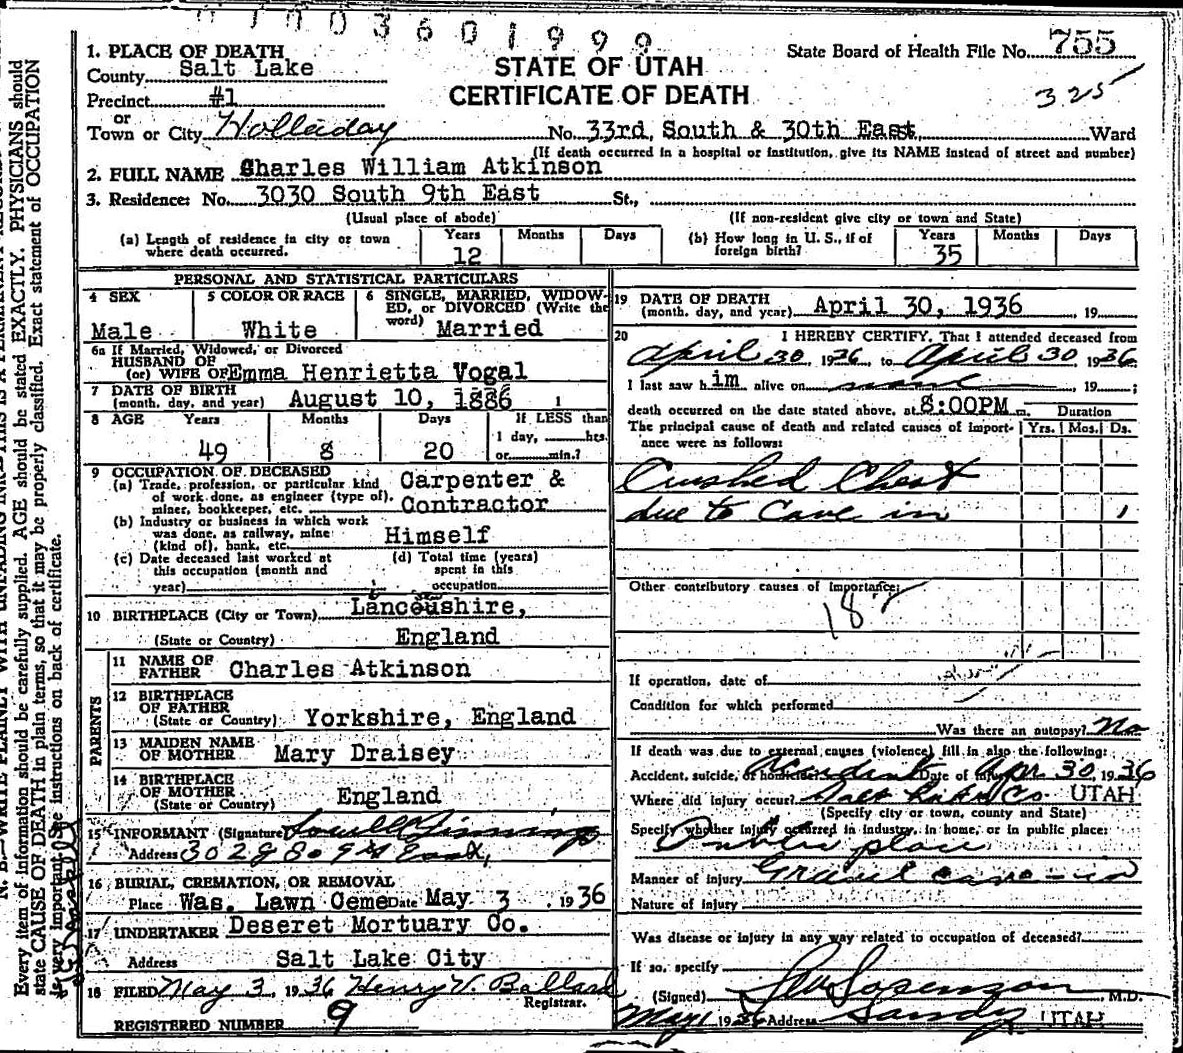 0 1 0 0 3 6 0 1 9 9 9
1. PLACE OF DEATH
County Salt Lake
Precinct #1
or
Town or City Holladay No. 33rd South & 30th East Ward
(If death occurred in a hospital or institution, give its NAME instead of street and number)
STATE OF UTAH
CERTIFICATE OF DEATH
State Board of Health File No. 755
325
2. FULL NAME Charles William Atkinson
3. Residence: No. 3030 South 9th East St.,
(Usual place of abode) (If non-resident give city or town and State)
(a) Length of residence in city or town where death occurred. Years 12 Months Days
(b) How long in U. S., if of foreign birth? Years 35 Months Days
PERSONAL AND STATISTICAL PARTICULARS
4 SEX Male
5 COLOR OR RACE White
6 SINGLE, MARRIED, WIDOWED, or DIVORCED (Write the word) Married
6a If Married, Widowed, or Divorced
HUSBAND OF
(or) WIFE OF Emma Henrietta Vogal
7 DATE OF BIRTH
(month, day, and year) August 10, 1886
8 AGE Years 49 Months 8 Days 20 If LESS than 1 day, hrs. or min.?
9 OCCUPATION OF DECEASED
(a) Trade, profession, or particular kind of work done, as engineer (type of), miner, bookkeeper, etc. Carpenter & Contractor
(b) Industry or business in which work was done, as railway, mine (kind of), bank, etc. Himself
(c) Date deceased last worked at this occupation (month and year)
(d) Total time (years) spent in this occupation
10 BIRTHPLACE (City or Town) Lancoushire,
(State or Country) England
PARENTS
11 NAME OF FATHER Charles Atkinson
12 BIRTHPLACE OF FATHER
(State or Country) Yorkshire, England
13 MAIDEN NAME OF MOTHER Mary Draisey
14 BIRTHPLACE OF MOTHER
(State or Country) England
15 INFORMANT (Signature)
Address 3028 So 9th East,
16 BURIAL, CREMATION, OR REMOVAL
Place Was. Lawn Ceme Date May 3, 1936
17 UNDERTAKER Deseret Mortuary Co.
Address Salt Lake City
18 FILED May 3, 1936 Henry V. Ballard
Registrar.
REGISTERED NUMBER 9
19 DATE OF DEATH
(month, day, and year) April 30, 1936 , 19
20 I HEREBY CERTIFY, That I attended deceased from
April 30 1936 to April 30 1936
I last saw him alive on , 19 ;
death occurred on the date stated above, at 8:00PM m. Duration
The principal cause of death and related causes of importance were as follows: Yrs. Mos. Ds.
Crushed Chest
due to Cave in 1
Other contributory causes of importance:
18
If operation, date of
Condition for which performed
Was there an autopsy? No
If death was due to external causes (violence) fill in also the following:
Accident, suicide, or homicide? Accident Date of injury Apr 30, 1936
Where did injury occur? Salt Lake Co. UTAH
(Specify city or town, county and State)
Specify whether injury occurred in industry, in home, or in public place:
Public place
Manner of injury Gravel cave-in
Nature of injury
Was disease or injury in any way related to occupation of deceased?
If so, specify
(Signed) Sorenson , M.D.
May 1 1936 Address Sandy UTAH
Every item of information should be carefully supplied. AGE should be stated EXACTLY. PHYSICIANS should
state CAUSE OF DEATH in plain terms, so that it may be properly classified. Exact statement of OCCUPATION
is very important. See instructions on back of certificate.